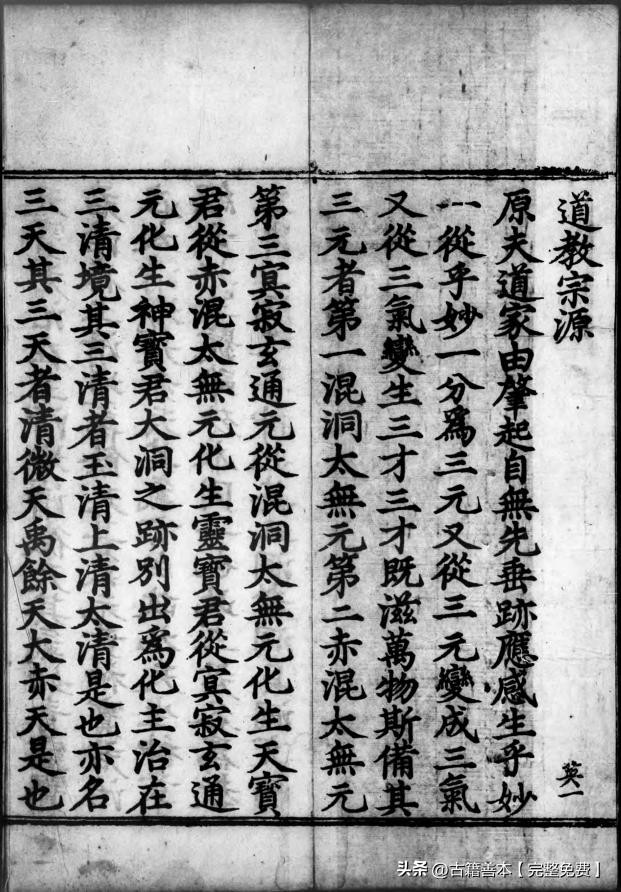 道教宗源
原夫道家由肇起自無先垂跡應感生乎妙
一從乎妙一分爲三元又從三元變成三氣
又從三氣變生三才三才既滋萬物斯備其
三元者第一混洞太無元第二赤混太無元
第三冥寂玄通元從混洞太無元化生天寶
君從赤混太無元化生靈寶君從冥寂玄通
元化生神寶君大洞之跡別出爲化主治在
三清境其三清者玉清上清太清是也亦名
三天其三天者清微天禹餘天大赤天是也
英一
头条 @古籍善本【完整免费】